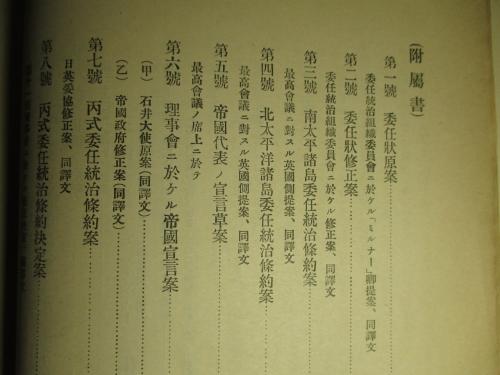 (附屬書)
第一號 委任狀原案
委任統治組織委員會ニ於ケル「ミルナー」卿提案、同譯文
第二號 委任狀修正案
委任統治組織委員會ニ於ケル修正案、同譯文
第三號 南太平洋諸島委任統治條約案
最高會議ニ對スル英國側提案、同譯文
第四號 北太平洋諸島委任統治條約案
最高會議ニ對スル英國側提案、同譯文
第五號 帝國代表ノ宣言草案
最高會議ノ席上ニ於テ
第六號 理事會ニ於ケル帝國宣言案
(甲) 石井大使原案(同譯文)
(乙) 帝國政府修正案(同譯文)
第七號 丙式委任統治條約案
日英妥協修正案、同譯文
第八號 丙式委任統治條約決定案